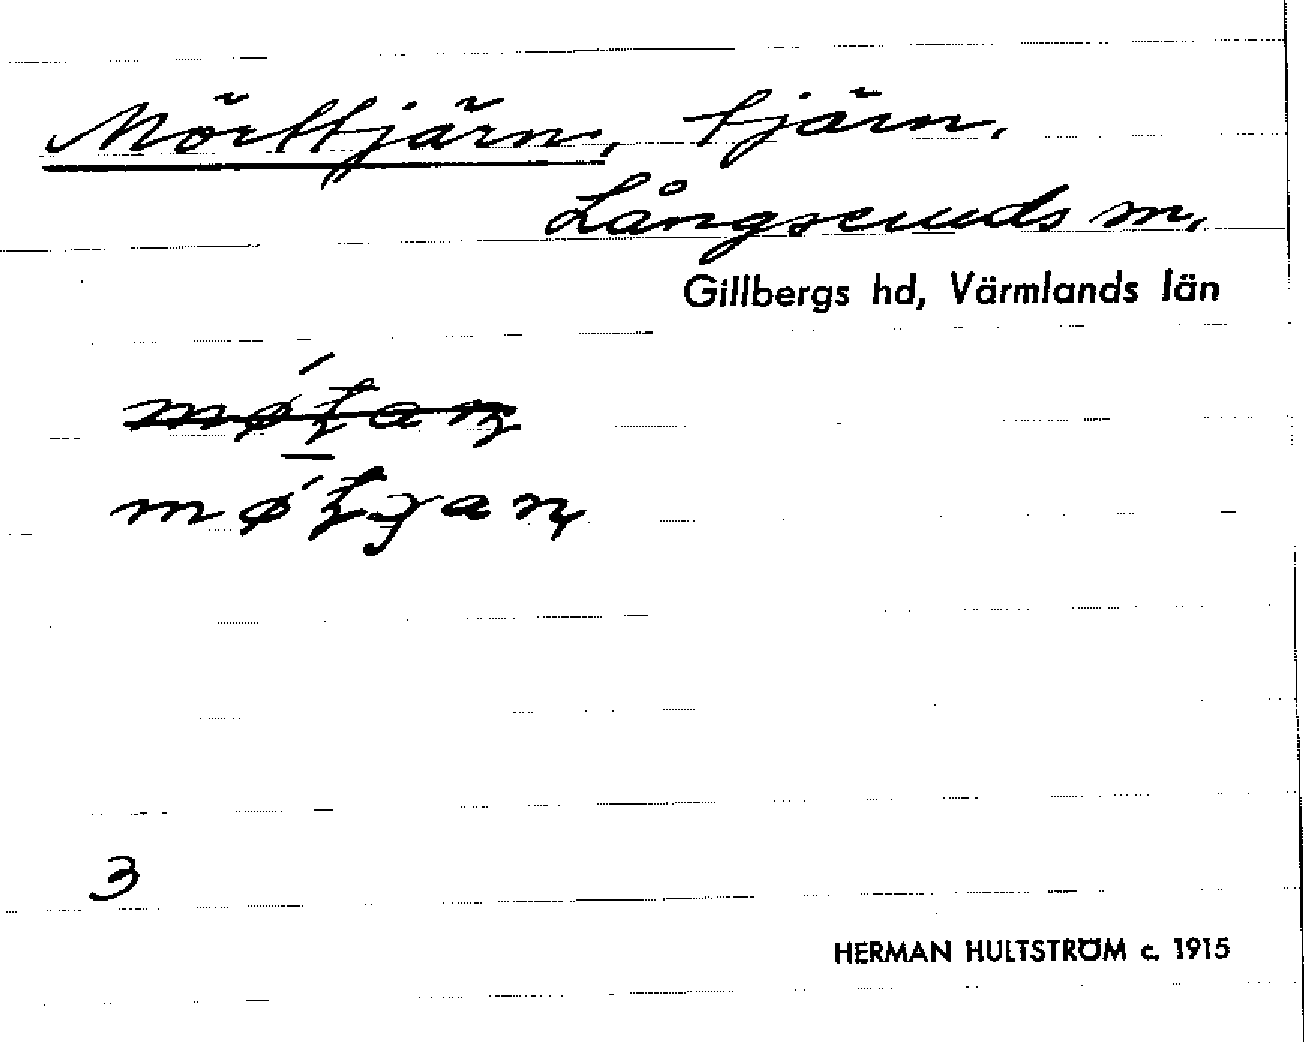 Mörttjärn, tjärn.
Långseruds sn.
Gillbergs hd, Värmlands län
3
HERMAN HULTSTRÖM c. 1915